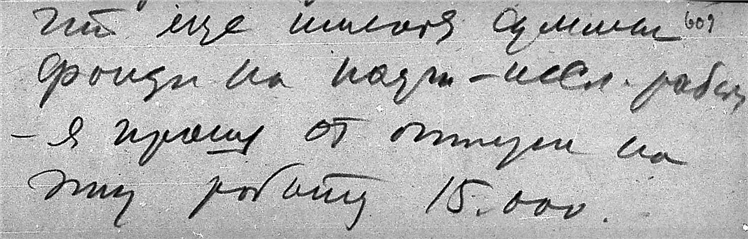 что еще имеются суммы 609
фонды на научн-иссл. работы
- я прошу от
на
эту работу 15.000.